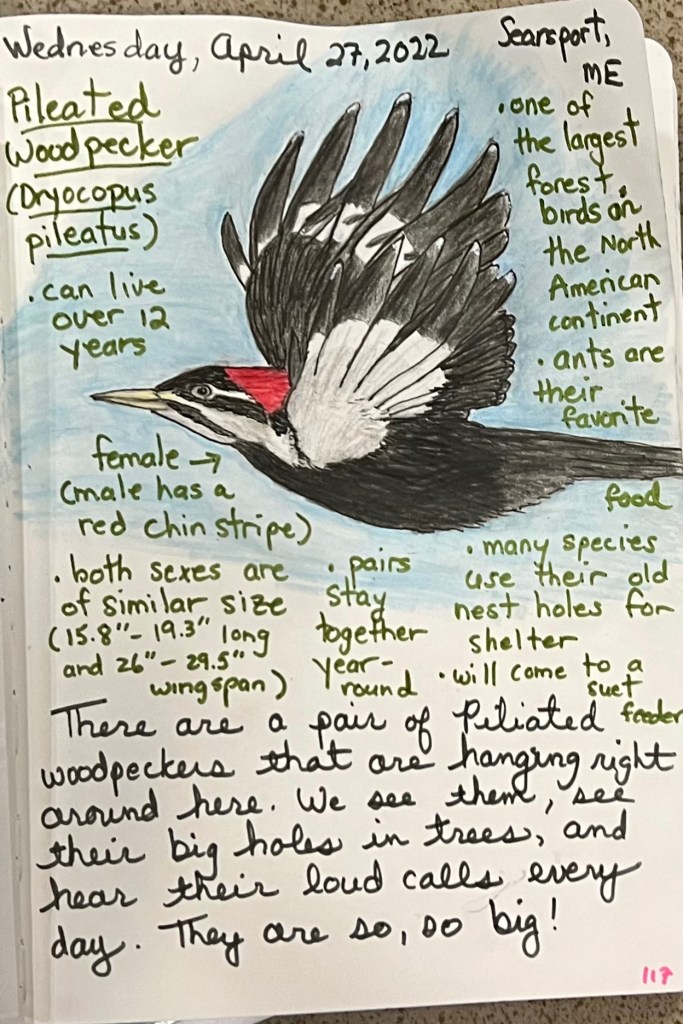 Wednesday, April 27, 2022
Searsport,
ME
Pileated
Woodpecker
(Dryocopus
pileatus)
• can live
over 12
years
• one of
the largest
forest
birds on
the North
American
continent
• ants are
their
favorite
food
female →
(male has a
red chin stripe)
• both sexes are
of similar size
(15.8"- 19.3" long
and 26"- 29.5"
wingspan)
• pairs
stay
together
year-
round
• many species
use their old
nest holes for
shelter
• will come to a
suet
feeder
There are a pair of Piliated
woodpeckers that are hanging right
around here. We see them, see
their big holes in trees, and
hear their loud calls every
day. They are so, so big!
117